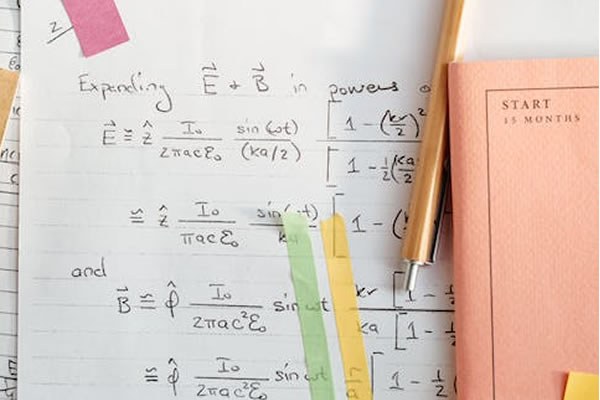 2
Expanding E⃗ & B⃗ in powers
E⃗ ≅ ẑ I₀/2πacε₀ sin(ωt)/(ka/2) [1 - (kr/2)²
[1 - ½(ka
≅ ẑ I₀/πacε₀ sin(ωt)/ka [1 - (
and
B⃗ ≅ φ̂ I₀/2πac²ε₀ sin ωt kr/ka [1 - ½
[1 - ½
≅ φ̂ I₀/2πac²ε₀ sin ωt r/a [1 - ½
START
15 MONTHS